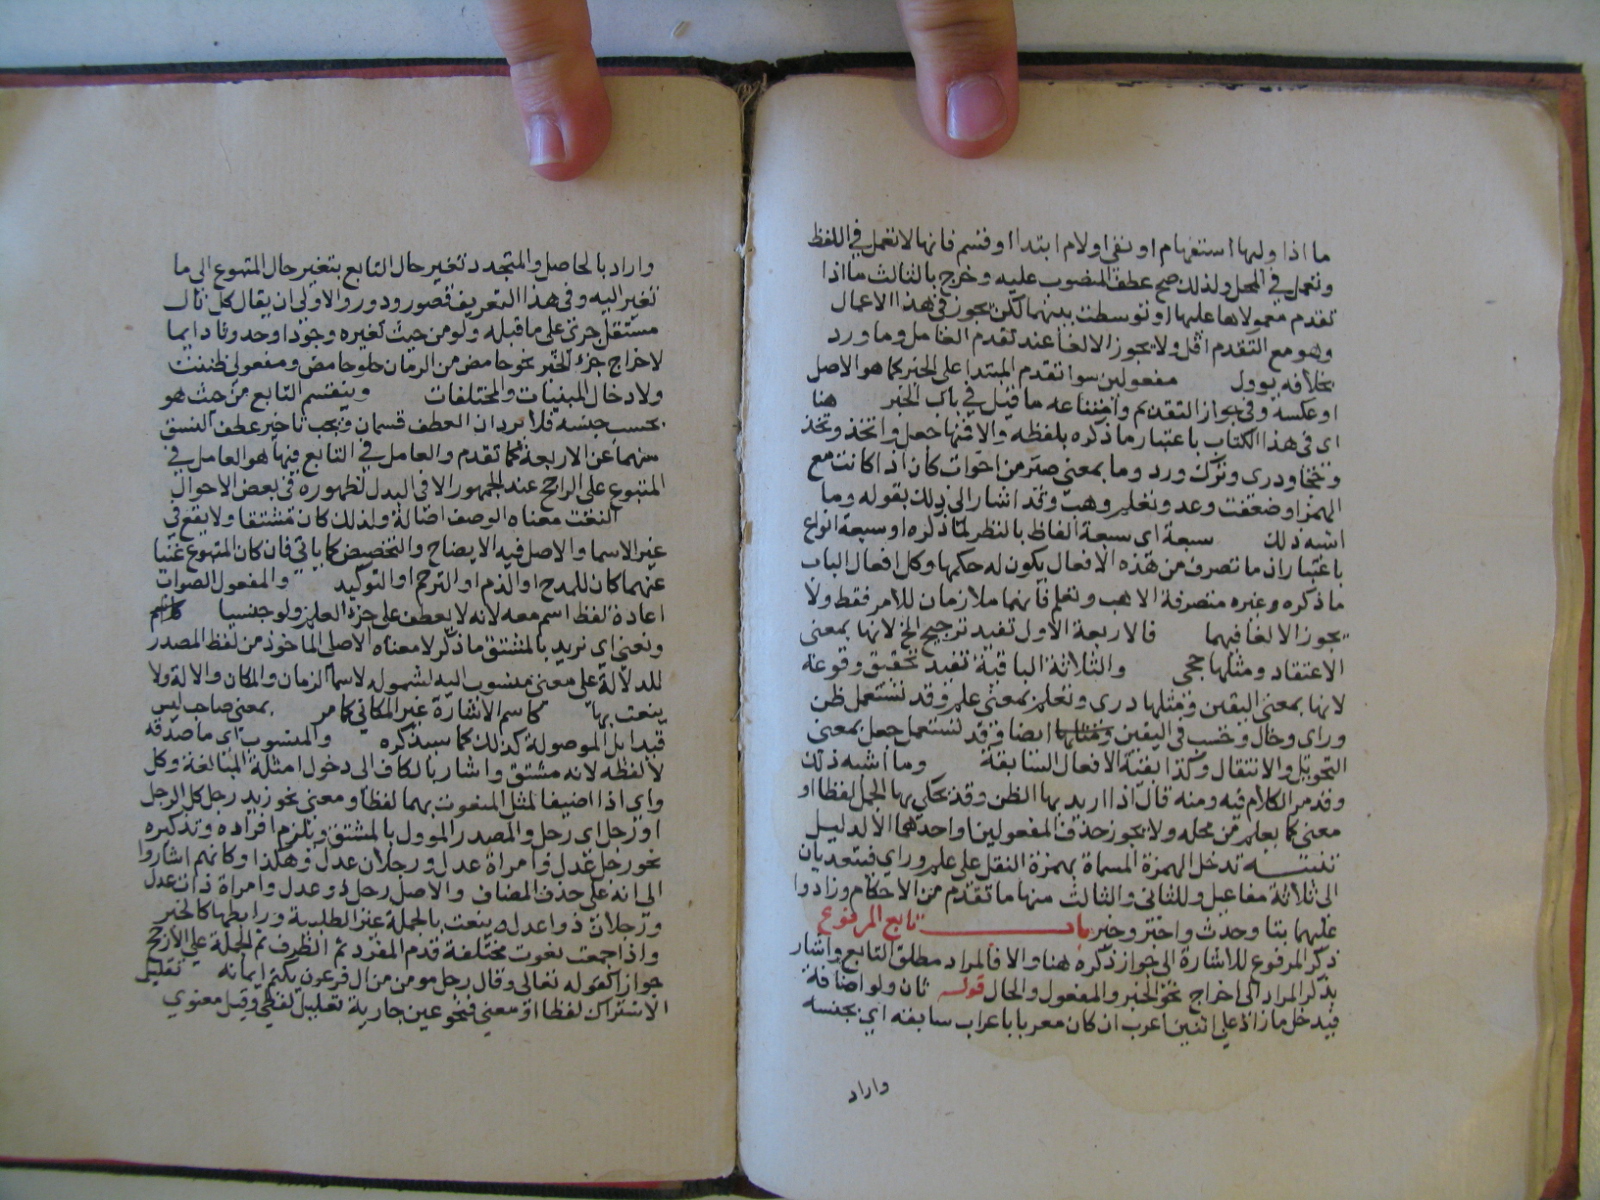 ما اذا وليها استفهام او نفي او لام ابتدا او قسم فانها لا تعمل في اللفظ
وتعمل في المحل ولذلك صح عطف المنصوب عليه وخرج بالثالث ما اذا
تقدم معمولاها عليها او توسطت بينهما لكن يجوز في هذا الاعمال
وهو مع التقدم اقل ولا يجوز الالغا عند تقدم العامل وما ورد
بخلافه يوول مفعولين سوا تقدم المبتدا على الخبر كما هو الاصل
او عكسه وفي جواز التقديم وامتناعه ما قيل في باب الخبر هنا
اي في هذا الكتاب باعتبار ما ذكره بلفظه والا فمنها جعل واتخذ وتخذ
ودرى وترك ورد وما بمعنى صير من اخوات كان اذا كانت مع
الهمز او ضعفت وعد وتعلم وهب وقد اشار الى ذلك بقوله وما
اشبه ذلك سبعة اي سبعة الفاظ بالنظر لما ذكره او سبعة انواع
باعتبار ان ما تصرف من هذه الافعال يكون له حكمها وكل افعال الباب
ما ذكره وغيره متصرفة الا هب وتعلم فانهما ملازمان للامر فقط ولا
يجوز الالغا فيهما فالاربعة الاول تفيد ترجيح الخ لانها بمعنى
الاعتقاد ومثلها حجى والثلاثة الباقية تفيد تحقيق وقوعه
لانها بمعنى اليقين ومثلها درى وتعلم بمعنى علم وقد تستعمل ظن
وراى وخال وحسب في اليقين ايضا وقد تستعمل جعل بمعنى
التحويل والانتقال وكذا بقية الافعال السابقة وما اشبه ذلك
وقد مر الكلام فيه ومنه قال اذا اريد بها الظن وقد يحكي بها الجمل لفظا او
معنى كما يعلم من محله ولا يجوز حذف المفعولين او احدهما الا لدليل
تنبيه تدخل الهمزة المسماة بهمزة النقل على علم وراى فيتعديان
الى ثلاثة مفاعيل وللثاني والثالث منها ما تقدم من الاحكام وزادوا
عليهما نبا وحدث واخبر وخبر باب تابع المرفوع
ذكر المرفوع للاشارة الى جواز ذكره هنا والا فالمراد مطلق التابع واشار
بذكر المراد الى اخراج نحو الخبر والمفعول والحال قوله ثان ولو اضافة
فيدخل ما زاد على اثنين اعرب ان كان معربا باعراب سابقه اي بجنسه
واراد
واراد بالحاصل والمتجدد تغير حال التابع بتغير حال المتبوع الى ما
تغير اليه وفي هذا التعريف قصور ودور والاولى ان يقال كل تال
مستقل جرى على ما قبله ولو من حيث تغيره وجودا وحدوثا دايما
لاخراج جزء الخبر نحو حامض من الرمان حلو حامض ومفعولي ظننت
ولادخال المبنيات والمختلفات وينقسم التابع من حيث هو
بحسب جنسه فلا يرد ان العطف قسمان ويجب تاخير عطف النسق
منهما عن الاربعة كما تقدم والعامل في التابع فيها هو العامل في
المتبوع على الراجح عند الجمهور الا في البدل لظهوره في بعض الاحوال
النعت معناه الوصف اصالة ولذلك كان مشتقا ولا يقع في
غير الاسما والاصل فيه الايضاح والتخصيص كما ياتي فان كان المتبوع غنيا
عنهما كان للمدح او الذم او الترحم او التوكيد والمفعول الصواب
اعادة لفظ اسم معه لانه لا يعطف على جزء العلم ولو جنسيا
ونعني اي نريد بالمشتق ما ذكر لا معناه الاصلي الماخوذ من لفظ المصدر
للدلالة على معنى منسوب اليه لشموله لاسما الزمان والمكان والالة ولا
ينعت بها كاسم الاشارة غير المكاني كما مر بمعنى صاحب ليس
قيدا بل الموصولة كذلك كما سيذكره والمنسوب اي ما صدقه
لا لفظه لانه مشتق واشار بالكاف الى دخول امثلة المبالغة وكل
واي اذا اضيفا لمثل المنعوت بهما لفظا ومعنى نحو زيد رجل كل الرجل
او رجل اي رجل والمصدر الموول بالمشتق ويلزم افراده وتذكيره
نحو رجل عدل وامراة عدل ورجلان عدل وهكذا وكانهم اشاروا
الى انه على حذف المضاف والاصل رجل ذو عدل وامراة ذات عدل
ورجلان ذوا عدل وينعت بالجملة غير الطلبية ورابطها كالخبر
واذا اجتمعت نعوت مختلفة قدم المفرد ثم الظرف ثم الجملة على الارجح
جوازا كقوله تعالى وقال رجل مومن من ال فرعون يكتم ايمانه تقليل
الاشتراك لفظا او معنى فنحو عين جارية تقليل لفظي وقيل معنوي